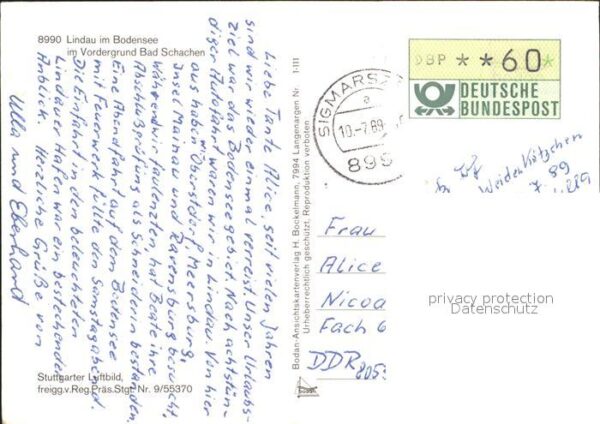 8990 Lindau im Bodensee
im Vordergrund Bad Schachen
Liebe Tante Alice, seit vielen Jahren
sind wir wieder einmal verreist. Unser Urlaubs-
ziel war das Bodenseegebiet. Nach achtstün-
diger Autofahrt waren wir in Lindau. Von hier
aus haben wir Oberstdorf, Meersburg,
Insel Mainau und Ravensburg besucht.
Während wir faulenzten, hat Beate ihre
Abschlußprüfung als Schneiderin bestanden.
Eine Abendfahrt auf dem Bodensee
mit Feuerwerk füllte den Samstagabend.
Die Einfahrt in den beleuchteten
Lindauer Hafen war ein bestechender
Anblick. Herzliche Grüße von
Ulla und Eberhard
Stuttgarter Luftbild,
freigg.v.Reg.Präs.Stgt. Nr. 9/55370
Bodan-Ansichtskartenverlag H. Bockelmann, 7994 Langenargen Nr. 1-111
Urheberrechtlich geschützt. Reproduktion verboten
SIGMARS
a
10.-7.89
895
DBP * * 60 *
DEUTSCHE
BUNDESPOST
Weidenkätzchen
89
Frau
Alice
Nicoa
Fach 6
DDR 805
privacy protection
Datenschutz